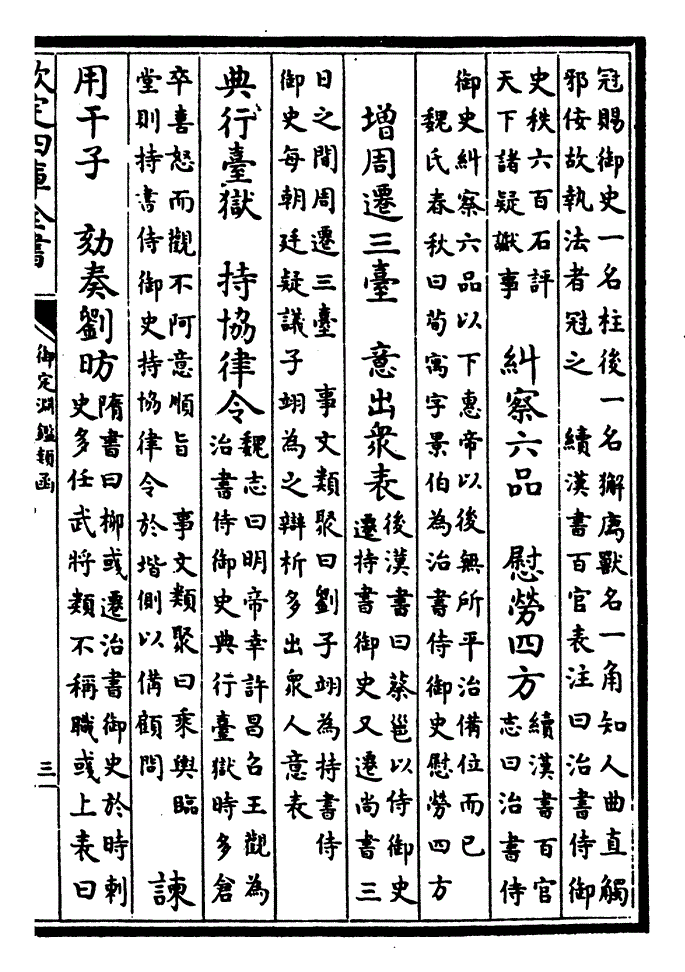 冠賜御史一名柱後一名獬廌獸名一角知人曲直觸
邪佞故執法者冠之　續漢書百官表注曰治書侍御
史秩六百石評
天下諸疑讞事
糾察六品　慰勞四方
續漢書百官
志曰治書侍
御史糾察六品以下惠帝以後無所平治備位而已
魏氏春秋曰荀寓字景伯為治書侍御史慰勞四方
增周遷三臺　意出衆表
後漢書曰蔡邕以侍御史
遷持書御史又遷尚書三
日之間周遷三臺　事文類聚曰劉子翊為持書侍
御史每朝廷疑議子翊為之辯析多出衆人意表
典行臺獄　持協律令
魏志曰明帝幸許昌召王觀為
治書侍御史典行臺獄時多倉
卒喜怒而觀不阿意順旨　事文類聚曰乘輿臨
堂則持書侍御史持協律令於堦側以備顧問
諫
用干子　劾奏劉昉
隋書曰柳彧遷治書御史於時刺
史多任武將類不稱職彧上表曰
欽定四庫全書
御定淵鑑類函
三